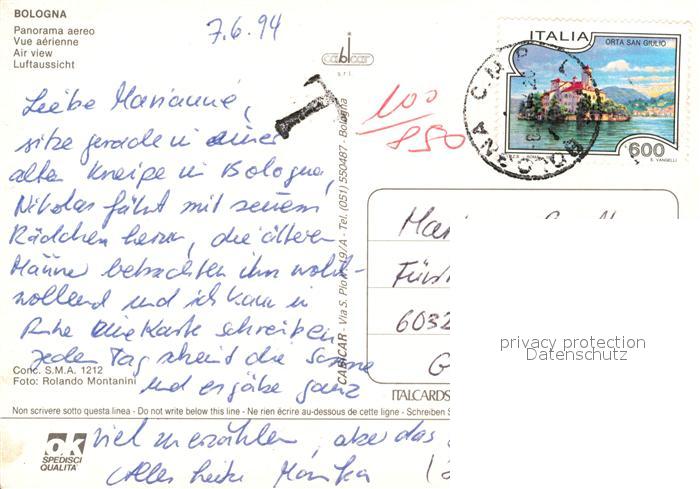 BOLOGNA
Panorama aereo
Vue aérienne
Air view
Luftaussicht
7.6.94
cabicar
s.r.l.
T
100
850
ITALIA
ORTA SAN GIULIO
600
E. VANGELLI
BOLOGNA C.M.P.
Liebe Marianne,
sitze gerade in einer
alten Kneipe in Bologna,
Nikolas fährt mit seinem
Rädchen herum, die älteren
Männer betrachten ihn wohl-
wollend und ich kann in
Ruhe eine Karte schreiben.
Jeden Tag scheint die Sonne
und es gäbe ganz
viel zu erzählen, aber das
Alles Liebe Monika
CABICAR - Via S. Pio V, 19/A - Tel. (051) 550487 - Bologna
Mar
Fürst
6032
G
Conc. S.M.A. 1212
Foto: Rolando Montanini
ITALCARDS
Non scrivere sotto questa linea - Do not write below this line - Ne rien écrire au-dessous de cette ligne - Schreiben S
ok
SPEDISCI
QUALITA'
privacy protection
Datenschutz